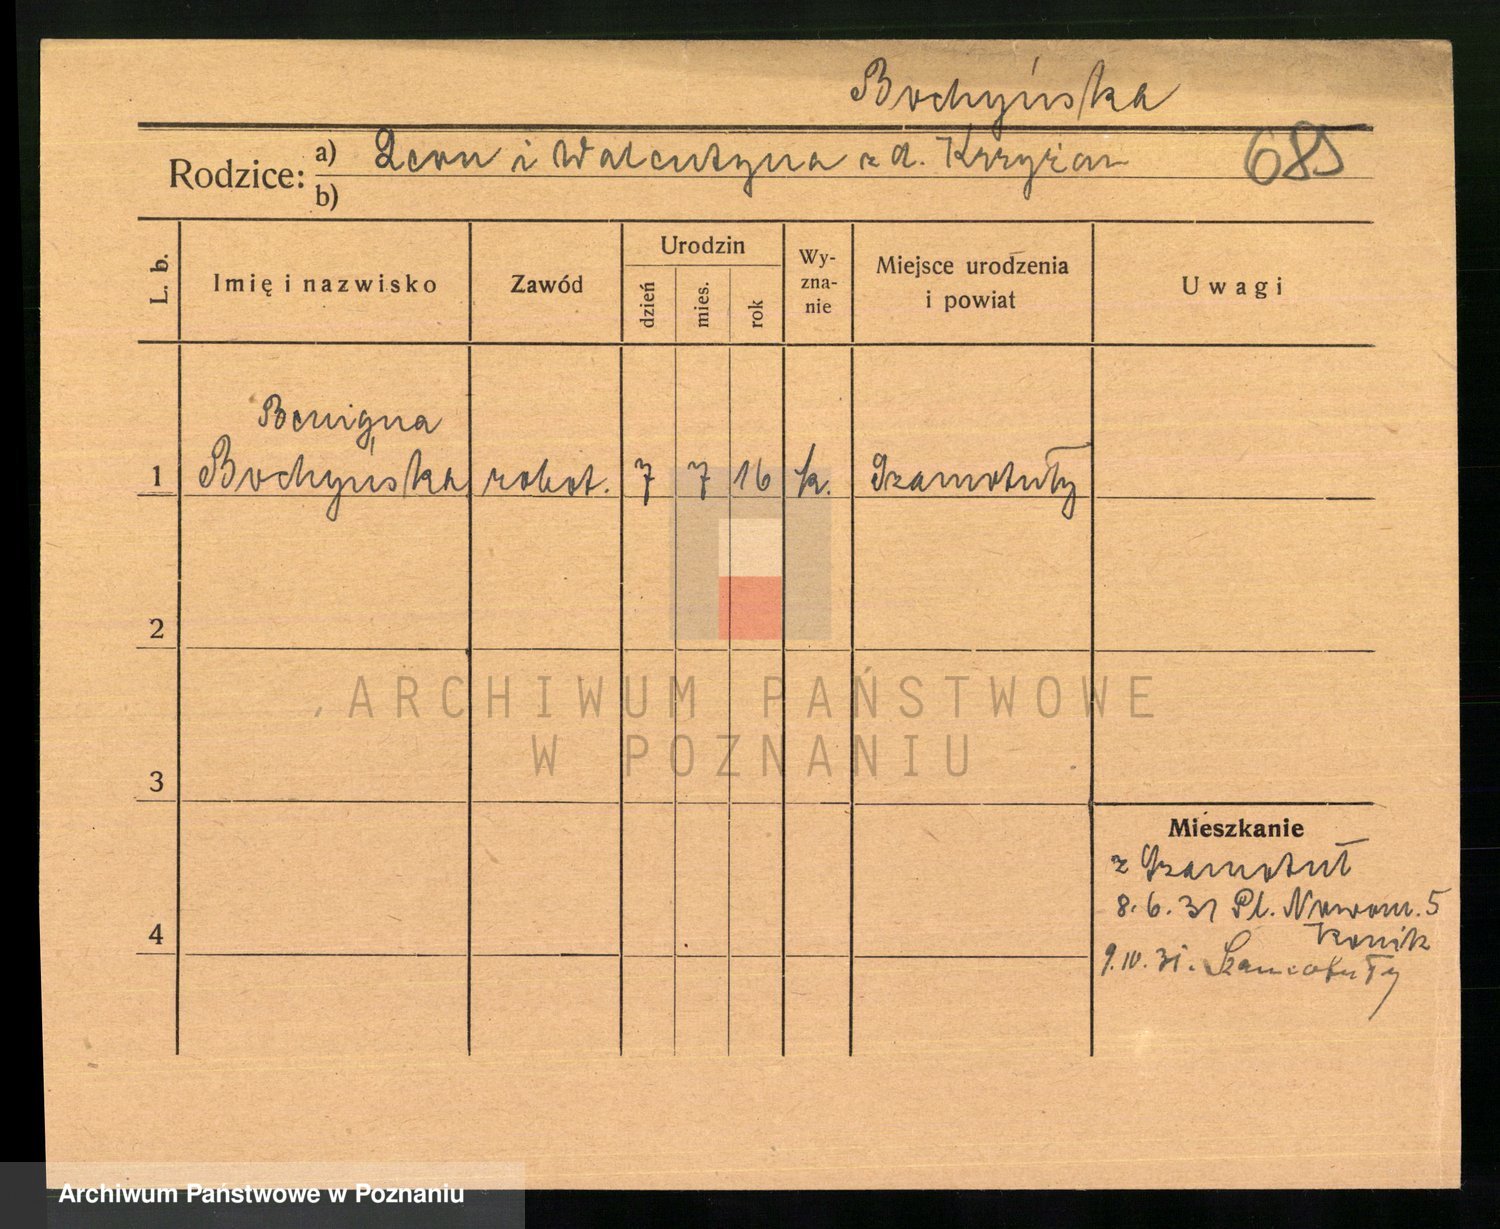 Bochyńska
Rodzice: a) Leon i Walentyna z d. Krzyżan 685
b)
L. b. Imię i nazwisko Zawód Urodzin dzień mies. rok Wy-zna-nie Miejsce urodzenia i powiat Uwagi
Benigna
1 Bochyńska robot. 7 7 16 k. Szamotuły
2
3
4
Mieszkanie
z Szamotuł
8.6.31 Pl. Nowom. 5
9.IV.31. Szamotuły
ARCHIWUM PAŃSTWOWE
W POZNANIU
Archiwum Państwowe w Poznaniu